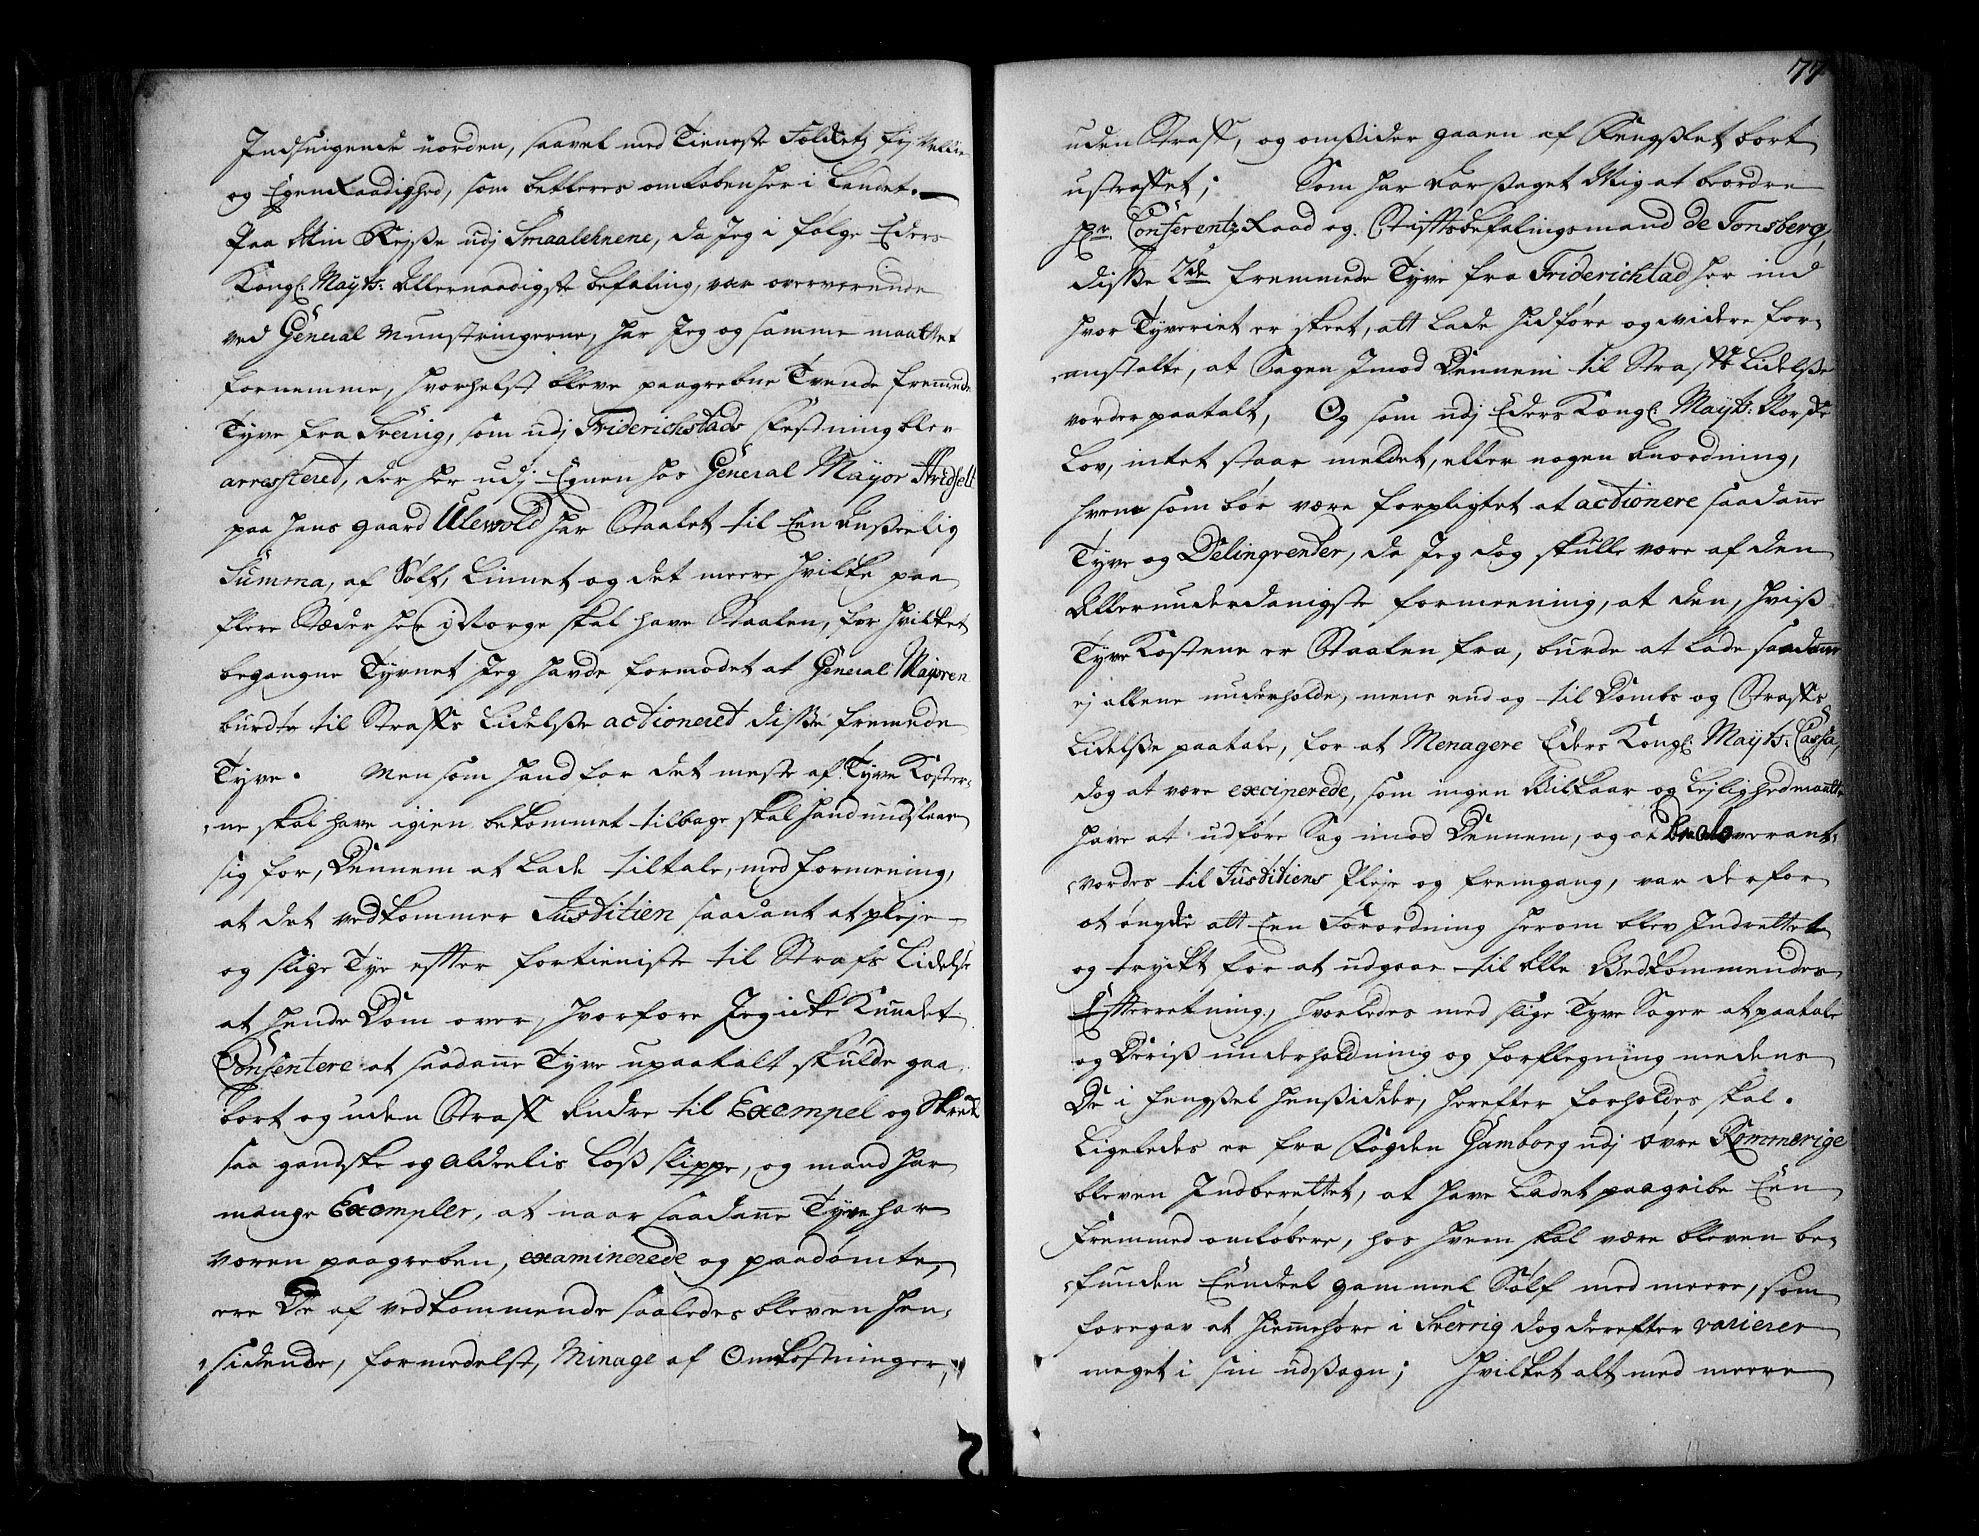 Indsnigende uorden, saavel med Tieneste Folckets
og Egenraadighed, som betleres omløben her i Landet.
Paa Min Rejße udj Smaalehnene, da Jeg i følge Eders
Kongl: Mayts: Allernaadigste befaling, var overværende
ved General Munstringerne, har Jeg og samme maattet
fornemme, hvorhelst bleve paagrebne Tvende fremede
Tyve fra Sverig, som udj Friderichstads Festning blev
arresteret, der her udj Egnen hos General Mayor
paa hans gaard Ulewold har Staalet til Een Anseelig
Summa, af Sølf, Linnet og det meere hvilke paa
flere Stæder her i Norge skal have Staalen, for hvilket
begangne Tyvnet Jeg havde formodet at General Mayoren
burdte til Straffs Lidelße actioneret diße fremede
Tyve. Men som hand for det meste af Tyve Koster-
ne skal have igien bekommet tilbage skal hand undslaae
sig for, Dennem at lade tiltale, med formening,
at det vedkommer Justitien saadant at pleje
og slige Tyve effter fortieniste til Strafs Lidelse
at hende Dom over, hvorfore Jeg icke Kundet
Consentere at saadane Tyve upaatalt skulde gaa
bort og uden Straff Andre til Exempel og Skrek
saa gandske og aldeelis Løß slippe, og mand har
mange Exempler, at naar saadane Tyve har
væren paagreben, examinerede og paadømte,
ere De af vedkommende saaledes bleven hen-
sidende, formedelst, Minage af Omkostninger,
77
uden Straff, og omßider gaaen af Fengßlet bort
ustraffet; Som har foraarsaget Mig at beordre
Hr Conferentz Raad og Stifftsbefalingsmand de Tonsberg,
diße 2de fremmede Tyve fra Friderichstad her ind
hvor Tyveriet er skeet, att lade hidføre og videre for-
anstalte, at Sagen Imod Dennem til Straffs Lidelße
vorder paatalt, Og som udj Eders Kongl: Mayts: Norske
Lov, intet staar meldet, eller nogen Anordning,
hvem som bør være forpligtet at actionere saadane
Tyve og Delinqventer, da Jeg dog skulle være af den
Allerunderdanigste formeening, at den, hviß
Tyve Kostene er Staalen fra, burde at lade saadane
ej allene underholde, mens endog til Dombs og Straffs
Lidelße paatale, for at Menagere Eders Kongl: Mayts: Cassa,
dog at være exciperede, som ingen Vilkaar og Lejlighed maatte
have at udføre Sag imod Dennem, og at
vordes til Justitiens Pleje og fremgang, var derfor
at ønske att Een Forordning herom blev Indrettet
og tryckt for at udgaae til Alle Vedkommendes
Efterretning, hvorledes med slige Tyve Sager at paatale
og Deriß underholdning og forflegning medens
De i fengßel henßidder, herefter forholdes skal.
Ligeledes er fra Fogden Gamborg udj Øvre Rommerige
bleven Indberettet, at have Ladet paagribe Een
fremmed omløbere, hos hvem skal være bleven be-
funden Eendeel gammel Sølf med meere, som
foregav at hiemehøre i Sverrig dog derefter varierer
meget i sin udßagn; Hvilket alt med meere